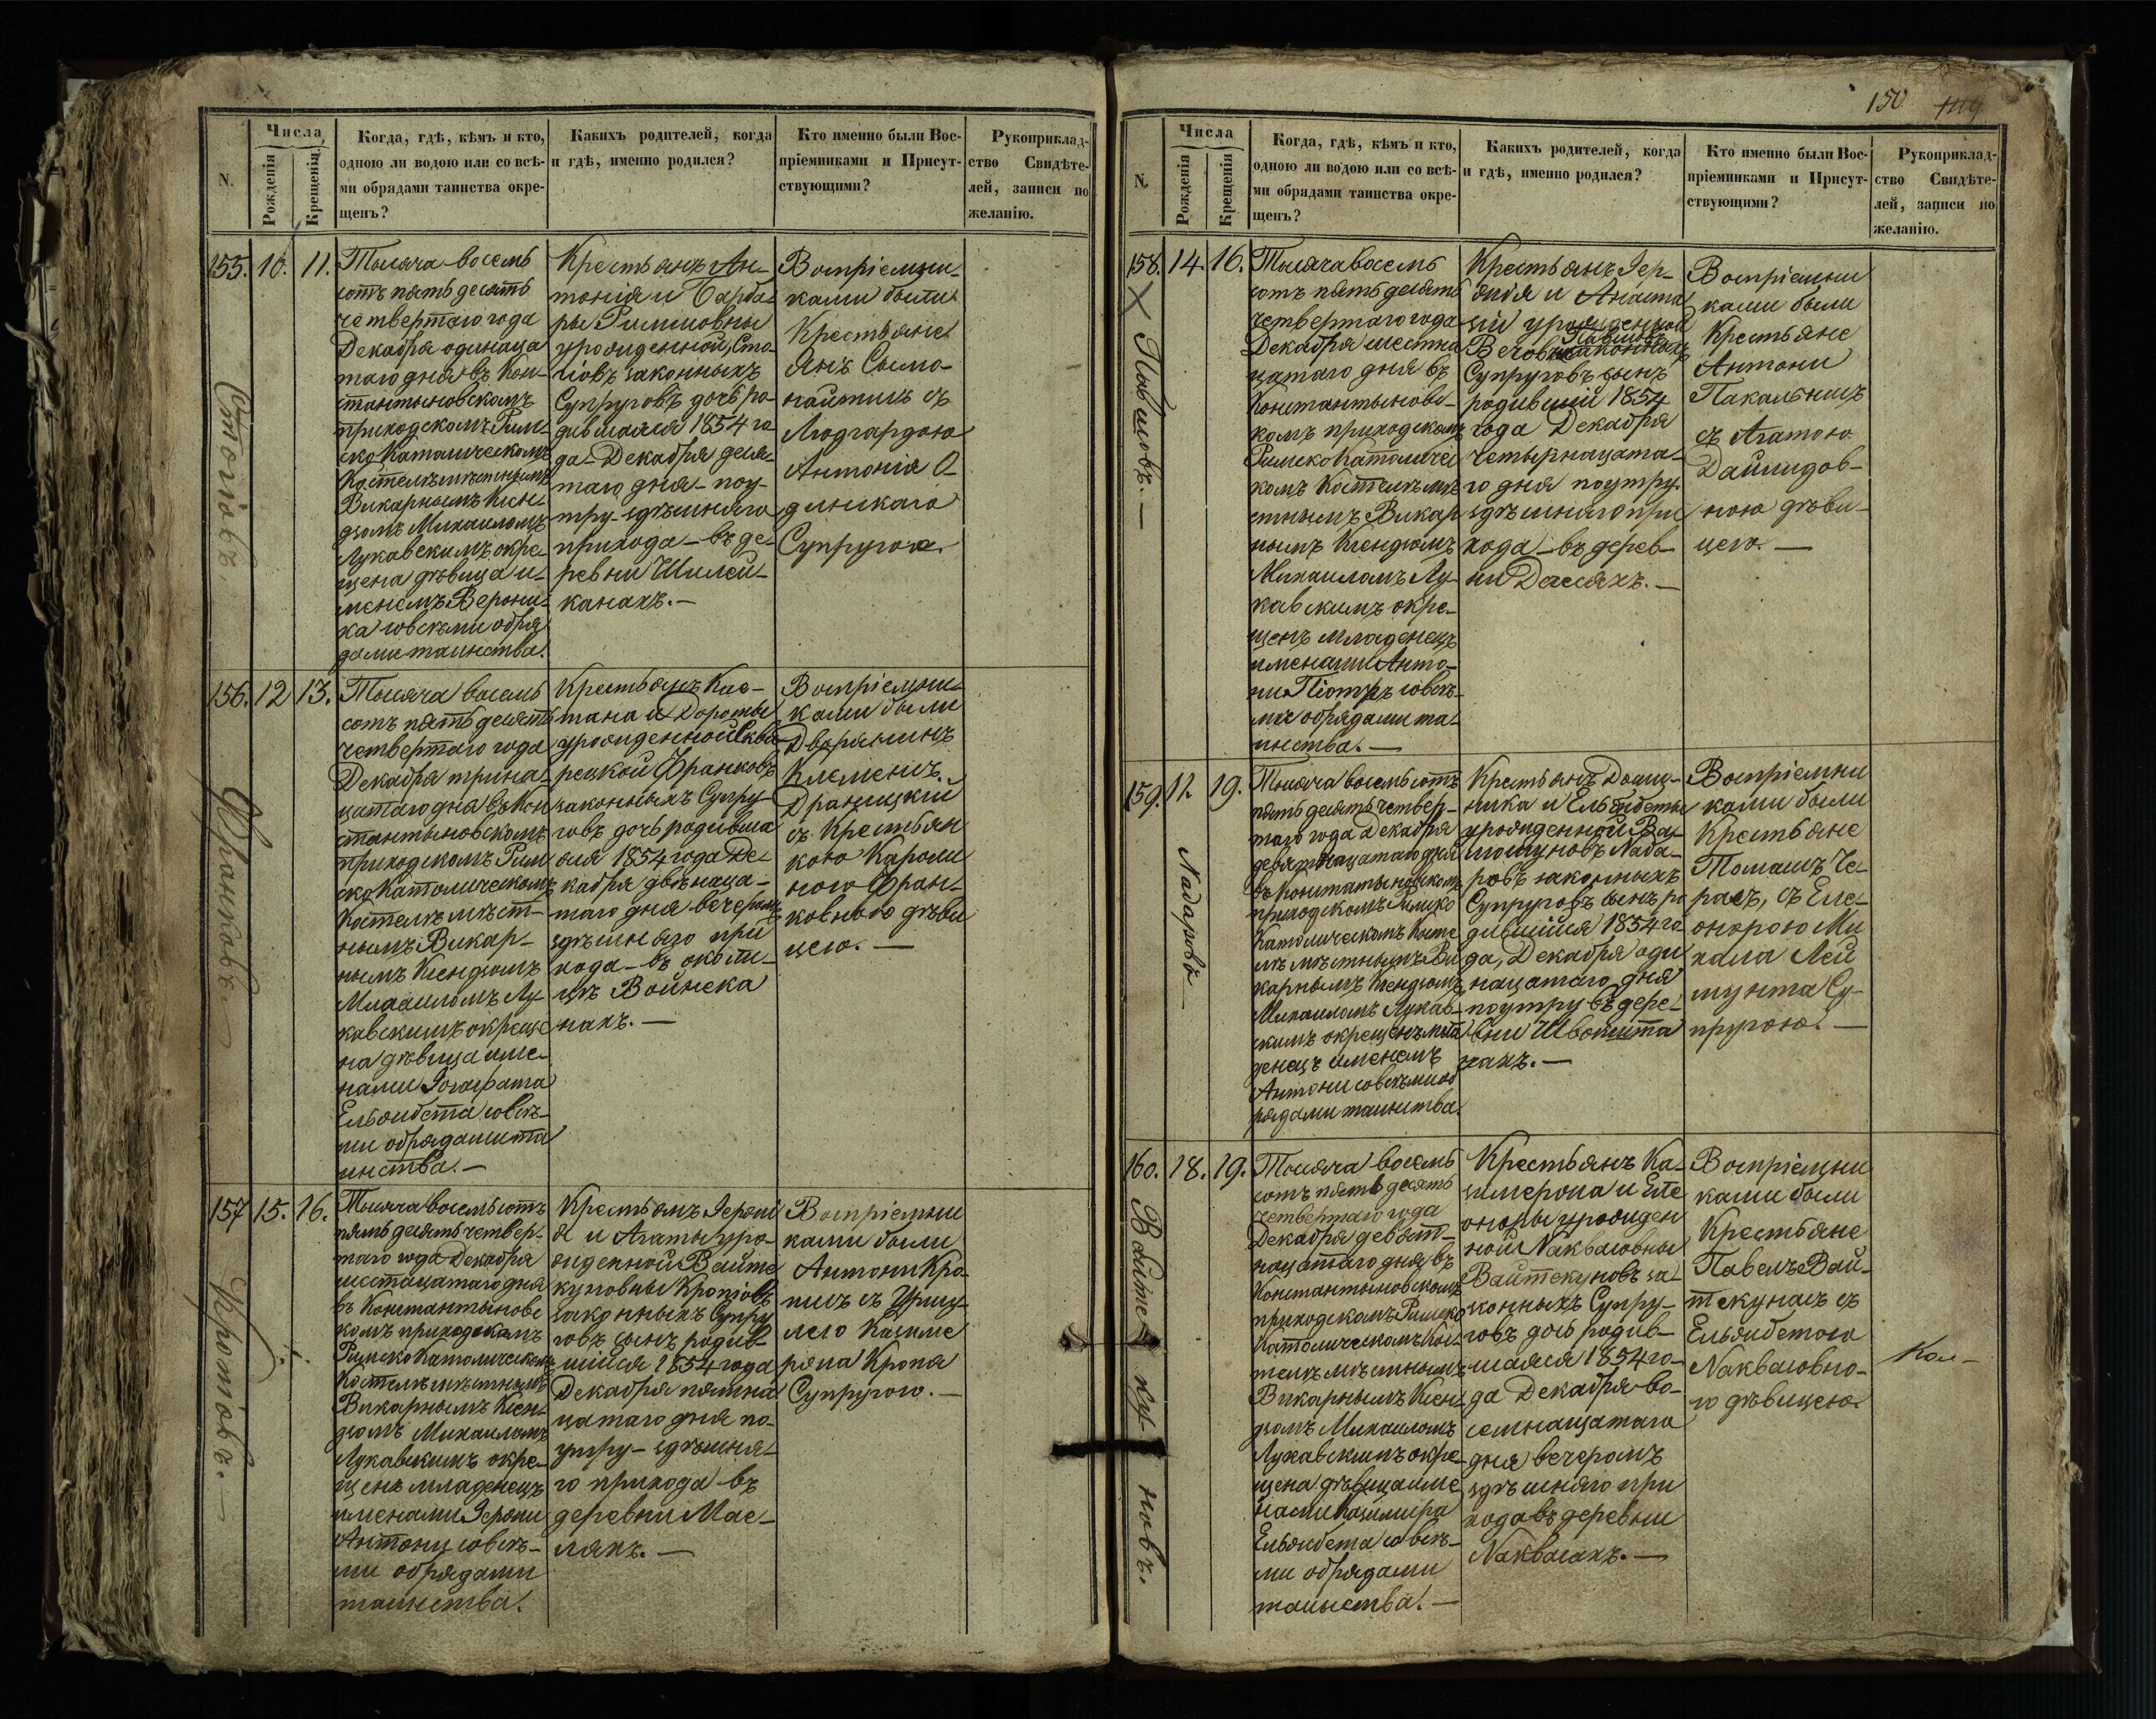 N.
Числа
Рожденія
Крещенія.
Когда, гдѣ, кѣмъ и кто,
одною ли водою или со всѣ-
ми обрядами таинства окре-
щенъ?
Какихъ родителей, когда
и гдѣ, именно родился?
Кто именно были Вос-
пріемниками и Присут-
ствующими?
Рукоприклад-
ство Свидѣте-
лей, записи по
желанію.
155. 10. 11.
Стогіовъ.
Тысяча восемь
сотъ пять десятъ
четвертаго года
Декабря одинаца
таго дня въ Кон-
стантыновскомъ
приходскомъ Рим-
ско Католическомъ
Костелѣ мѣстнымъ
Викарнымъ Ксен-
дзомъ Михаиломъ
Лукавскимъ окре-
щена дѣвица и-
менемъ Верони-
ка совсѣми обря
дами таинства.
Крестьянъ Ан-
тонія и Барба-
ры
урожденной, Сто-
гіовъ законныхъ
Супруговъ дочь ро-
дившаяся 1854 го-
да Декабря деся-
таго дня поу-
тру здѣшняго
прихода въ де-
ревни Шилей-
канахъ.
Воспріемни-
ками были
Крестьяне
Янъ Сымо-
найтисъ съ
Людгардою
Антонія О-
длинскаго
Супругою.
156. 12 13.
Франковъ.
Тысяча восемь
сотъ пять десятъ
четвертаго года
Декабря трина-
цатаго дня въ Кон
стантыновскомъ
приходскомъ Рим
ско Католическомъ
Костелѣ мѣст-
нымъ Викар-
нымъ Ксендзомъ
Михаиломъ Лу-
кавскимъ окреще
на дѣвица име-
нами
Ельжбета совсѣ-
ми обрядами та
инства.
Крестьянъ Кае-
тана и Дороты
урожденной Сква
рецкой Франковъ
законныхъ Супру-
говъ дочь родивша
яся 1854 года Де-
кабря двѣнаца-
таго дня вечеромъ
здѣшняго при
хода въ околи-
цѣ Войнска
нахъ.
Воспріемни-
ками были
Дворянинъ
Клеменсъ
съ Крестьян
кою Кароли
ною Фран-
ковною дѣви
цею.
157 15. 16.
Кропіовъ.
Тысяча восемь сотъ
пять десятъ четвер-
таго года Декабря
шестнацатаго дня
въ Константыновс
комъ приходскомъ
Римско Католическомъ
Костелѣ мѣстнымъ
Викарнымъ Ксен-
дзомъ Михаиломъ
Лукавскимъ окре-
щенъ младенецъ
именами Іерони
Антони совсѣ-
ми обрядами
таинства.
Крестьянъ Іерони
я и Агаты уро-
жденной Войте
куновны Кропіовъ
законныхъ Супру
говъ сынъ родив-
шійся 1854 года
Декабря пятна
цатаго дня по-
утру здѣшня-
го прихода въ
деревни Мас-
ляхъ.
Воспріемни
ками были
Антони Кро-
писъ съ Уршу-
лею Казиме
ряна Кропя
Супругою.
150
N.
Числа
Рожденія
Крещенія
Когда, гдѣ, кѣмъ и кто,
одною ли водою или со всѣ-
ми обрядами таинства окре-
щенъ?
Какихъ родителей, когда
и гдѣ, именно родился?
Кто именно были Вос-
пріемниками и Присут-
ствующими?
Рукоприклад-
ство Свидѣте-
лей, записи по
желанію.
158. 14. 16.
Тысяча восемь
сотъ пять десятъ
четвертаго года
Декабря шестна
цатаго дня въ
Константыновс-
комъ приходскомъ
Римско Католичес
комъ Костелѣ мѣ
стнымъ Викар
нымъ Ксендзомъ
Михаиломъ Лу-
кавскимъ окре-
щенъ младенецъ
именами Анто-
ни Піотръ совсѣ-
ми обрядами та-
инства.
Крестьянъ
и Анаста
зіи урожденной
Супруговъ сынъ
родившій 1854
года Декабря
четырнацата-
го дня поутру
здѣшняго при
хода въ дерев-
ни Дасяхъ.
Воспріемни
ками были
Крестьяне
Антони
Пакальнисъ
съ Агатою
Даймидов-
ною дѣви-
цею.
159. 11. 19.
Надаровъ
Тысяча восемь сотъ
пять десятъ четвер-
таго года Декабря
девятнацатаго дня
въ Константыновскомъ
приходскомъ Римско
Католическомъ Косте
лѣ мѣстнымъ Ви
карнымъ Ксендзомъ
Михаиломъ Лукав-
скимъ окрещенъ мла
денецъ именемъ
Антони совсѣми об
рядами таинства.
Крестьянъ Доми-
ника и Ельжбеты
урожденной
Нада-
ровъ законныхъ
Супруговъ сынъ ро
дившійся 1854 го-
да, Декабря оди
нацатаго дня
поутру въ дере-
вни
Воспріемни
ками были
Крестьяне
Томашъ Че-
расъ, съ Еле-
онорою Ми
хала Лей
мунта Су-
пругою.
160. 18. 19.
Войте ку- новъ.
Тысяча восемь
сотъ пять десятъ
четвертаго года
Декабря девят-
нацатаго дня въ
Константыновскомъ
приходскомъ Римско
Католическомъ Кос-
телѣ мѣстнымъ
Викарнымъ Ксен-
дзомъ Михаиломъ
Лукавскимъ окре-
щена дѣвица име
нами Казимира
Ельжбета совсѣ-
ми обрядами
таинства.
Крестьянъ Ка-
зимерона и Еле
оноры урожден
ной Наквасовны
Войтекуновъ за-
конныхъ Супру-
говъ дочь родив-
шаяся 1854 го-
да Декабря во-
семнацатаго
дня вечеромъ
здѣшняго при
хода въ деревни
Наквасахъ.
Воспріемни
ками были
Крестьяне
Павелъ Вой-
текунасъ съ
Ельжбетою
Наквасовно-
ю дѣвицею.